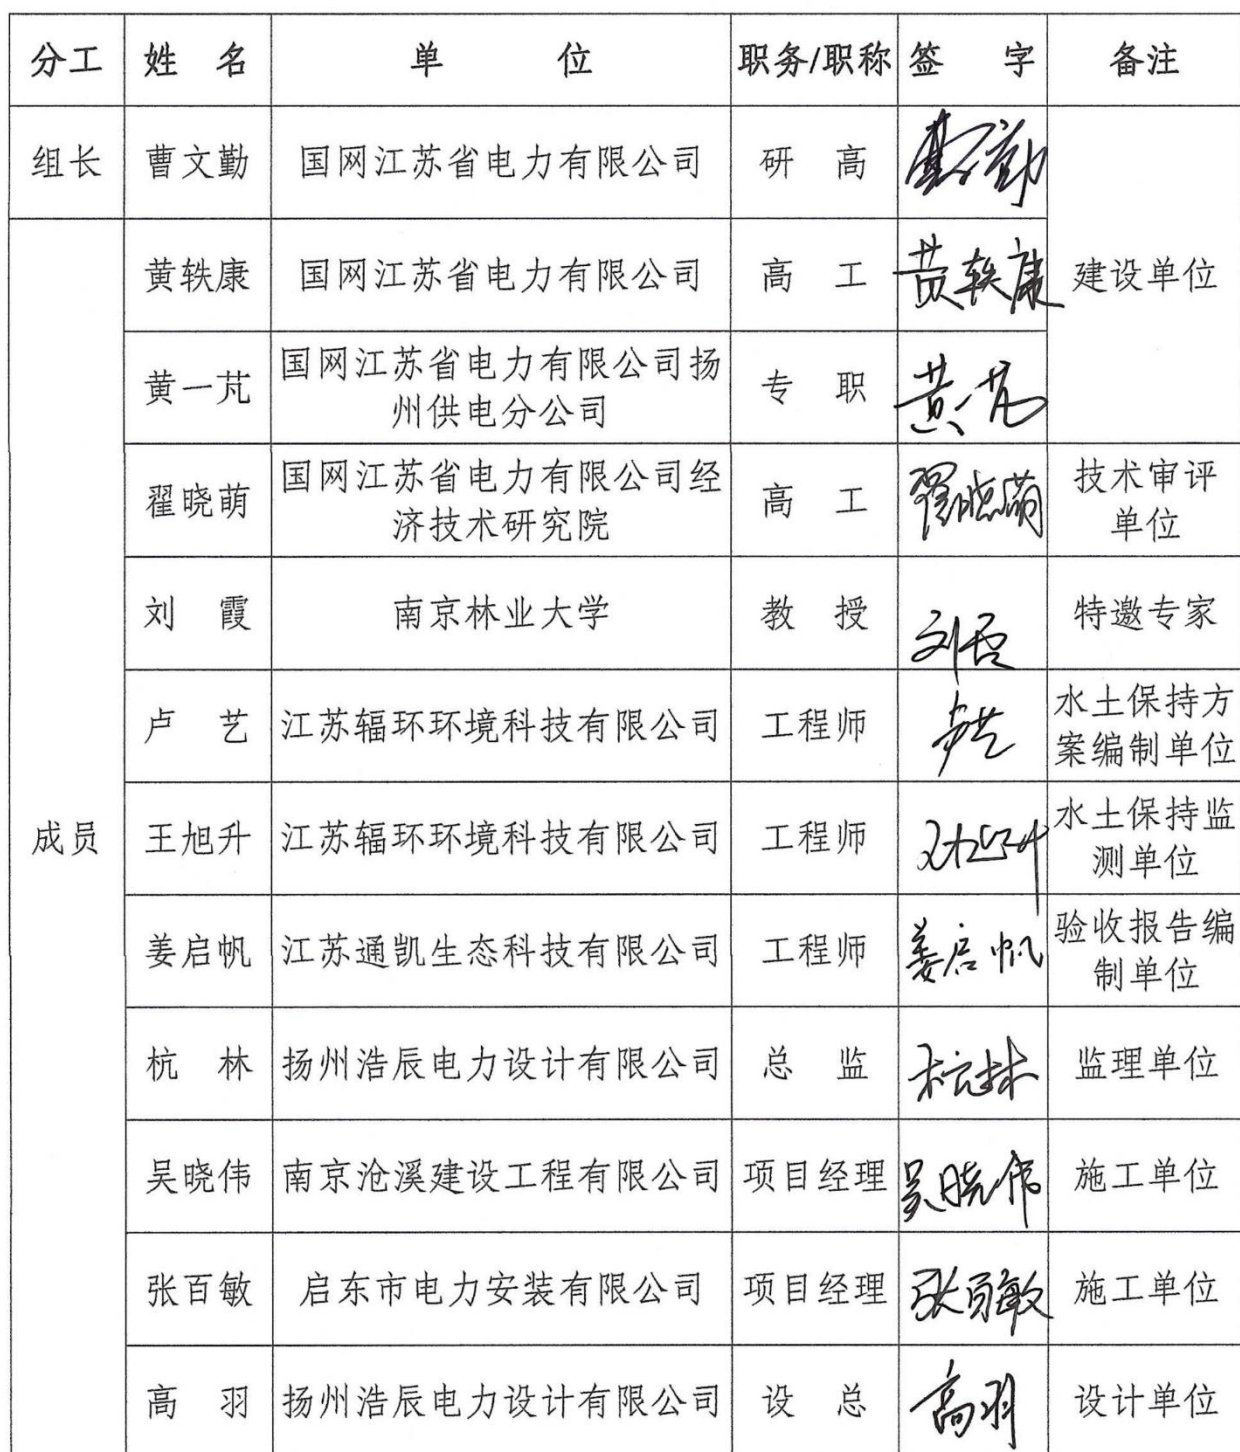 分工 姓 名 单 位 职务/职称 签 字 备注
组长 曹文勤 国网江苏省电力有限公司 研 高 曹文勤
黄轶康 国网江苏省电力有限公司 高 工 黄轶康 建设单位
黄一芃 国网江苏省电力有限公司扬
州供电分公司 专 职 黄一芃
翟晓萌 国网江苏省电力有限公司经
济技术研究院 高 工 翟晓萌 技术审评
单位
刘 霞 南京林业大学 教 授 刘霞 特邀专家
卢 艺 江苏辐环环境科技有限公司 工程师 卢艺 水土保持方
案编制单位
成员 王旭升 江苏辐环环境科技有限公司 工程师 王旭升 水土保持监
测单位
姜启帆 江苏通凯生态科技有限公司 工程师 姜启帆 验收报告编
制单位
杭 林 扬州浩辰电力设计有限公司 总 监 杭林 监理单位
吴晓伟 南京沧溪建设工程有限公司 项目经理 吴晓伟 施工单位
张百敏 启东市电力安装有限公司 项目经理 张百敏 施工单位
高 羽 扬州浩辰电力设计有限公司 设 总 高羽 设计单位